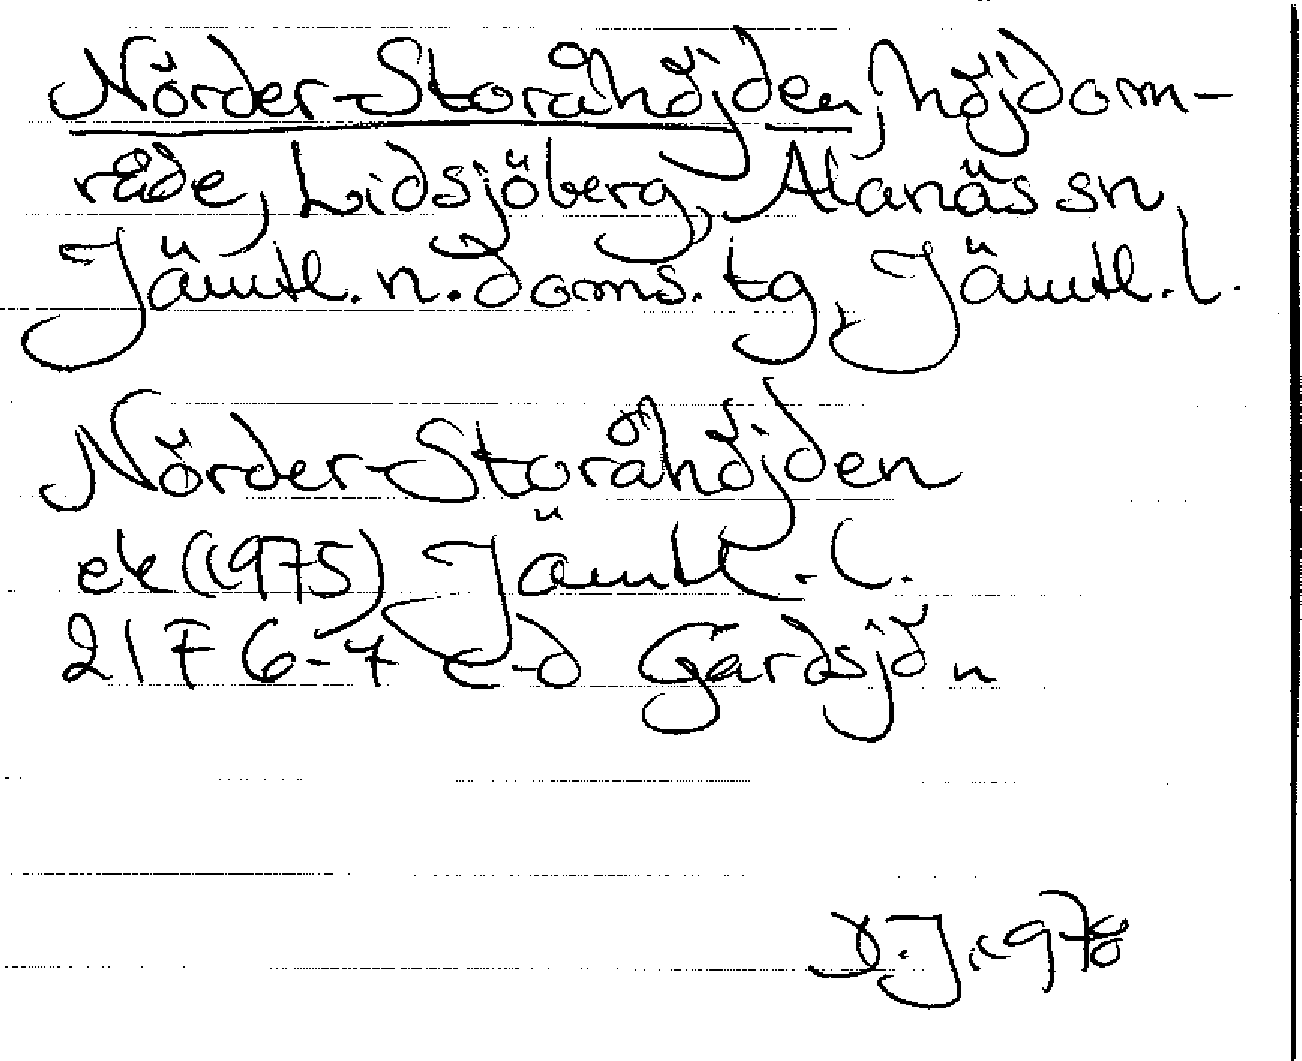 Nörder-Storåhöjden, höjdom-
råde, Lidsjöberg, Alanäs sn,
Jämtl. n. doms. tg, Jämtl. l.
Nörder-Storåhöjden
ek (1975) Jämtl. l.
21F 6-7 c-d Gärdsjön
D.J. 1978